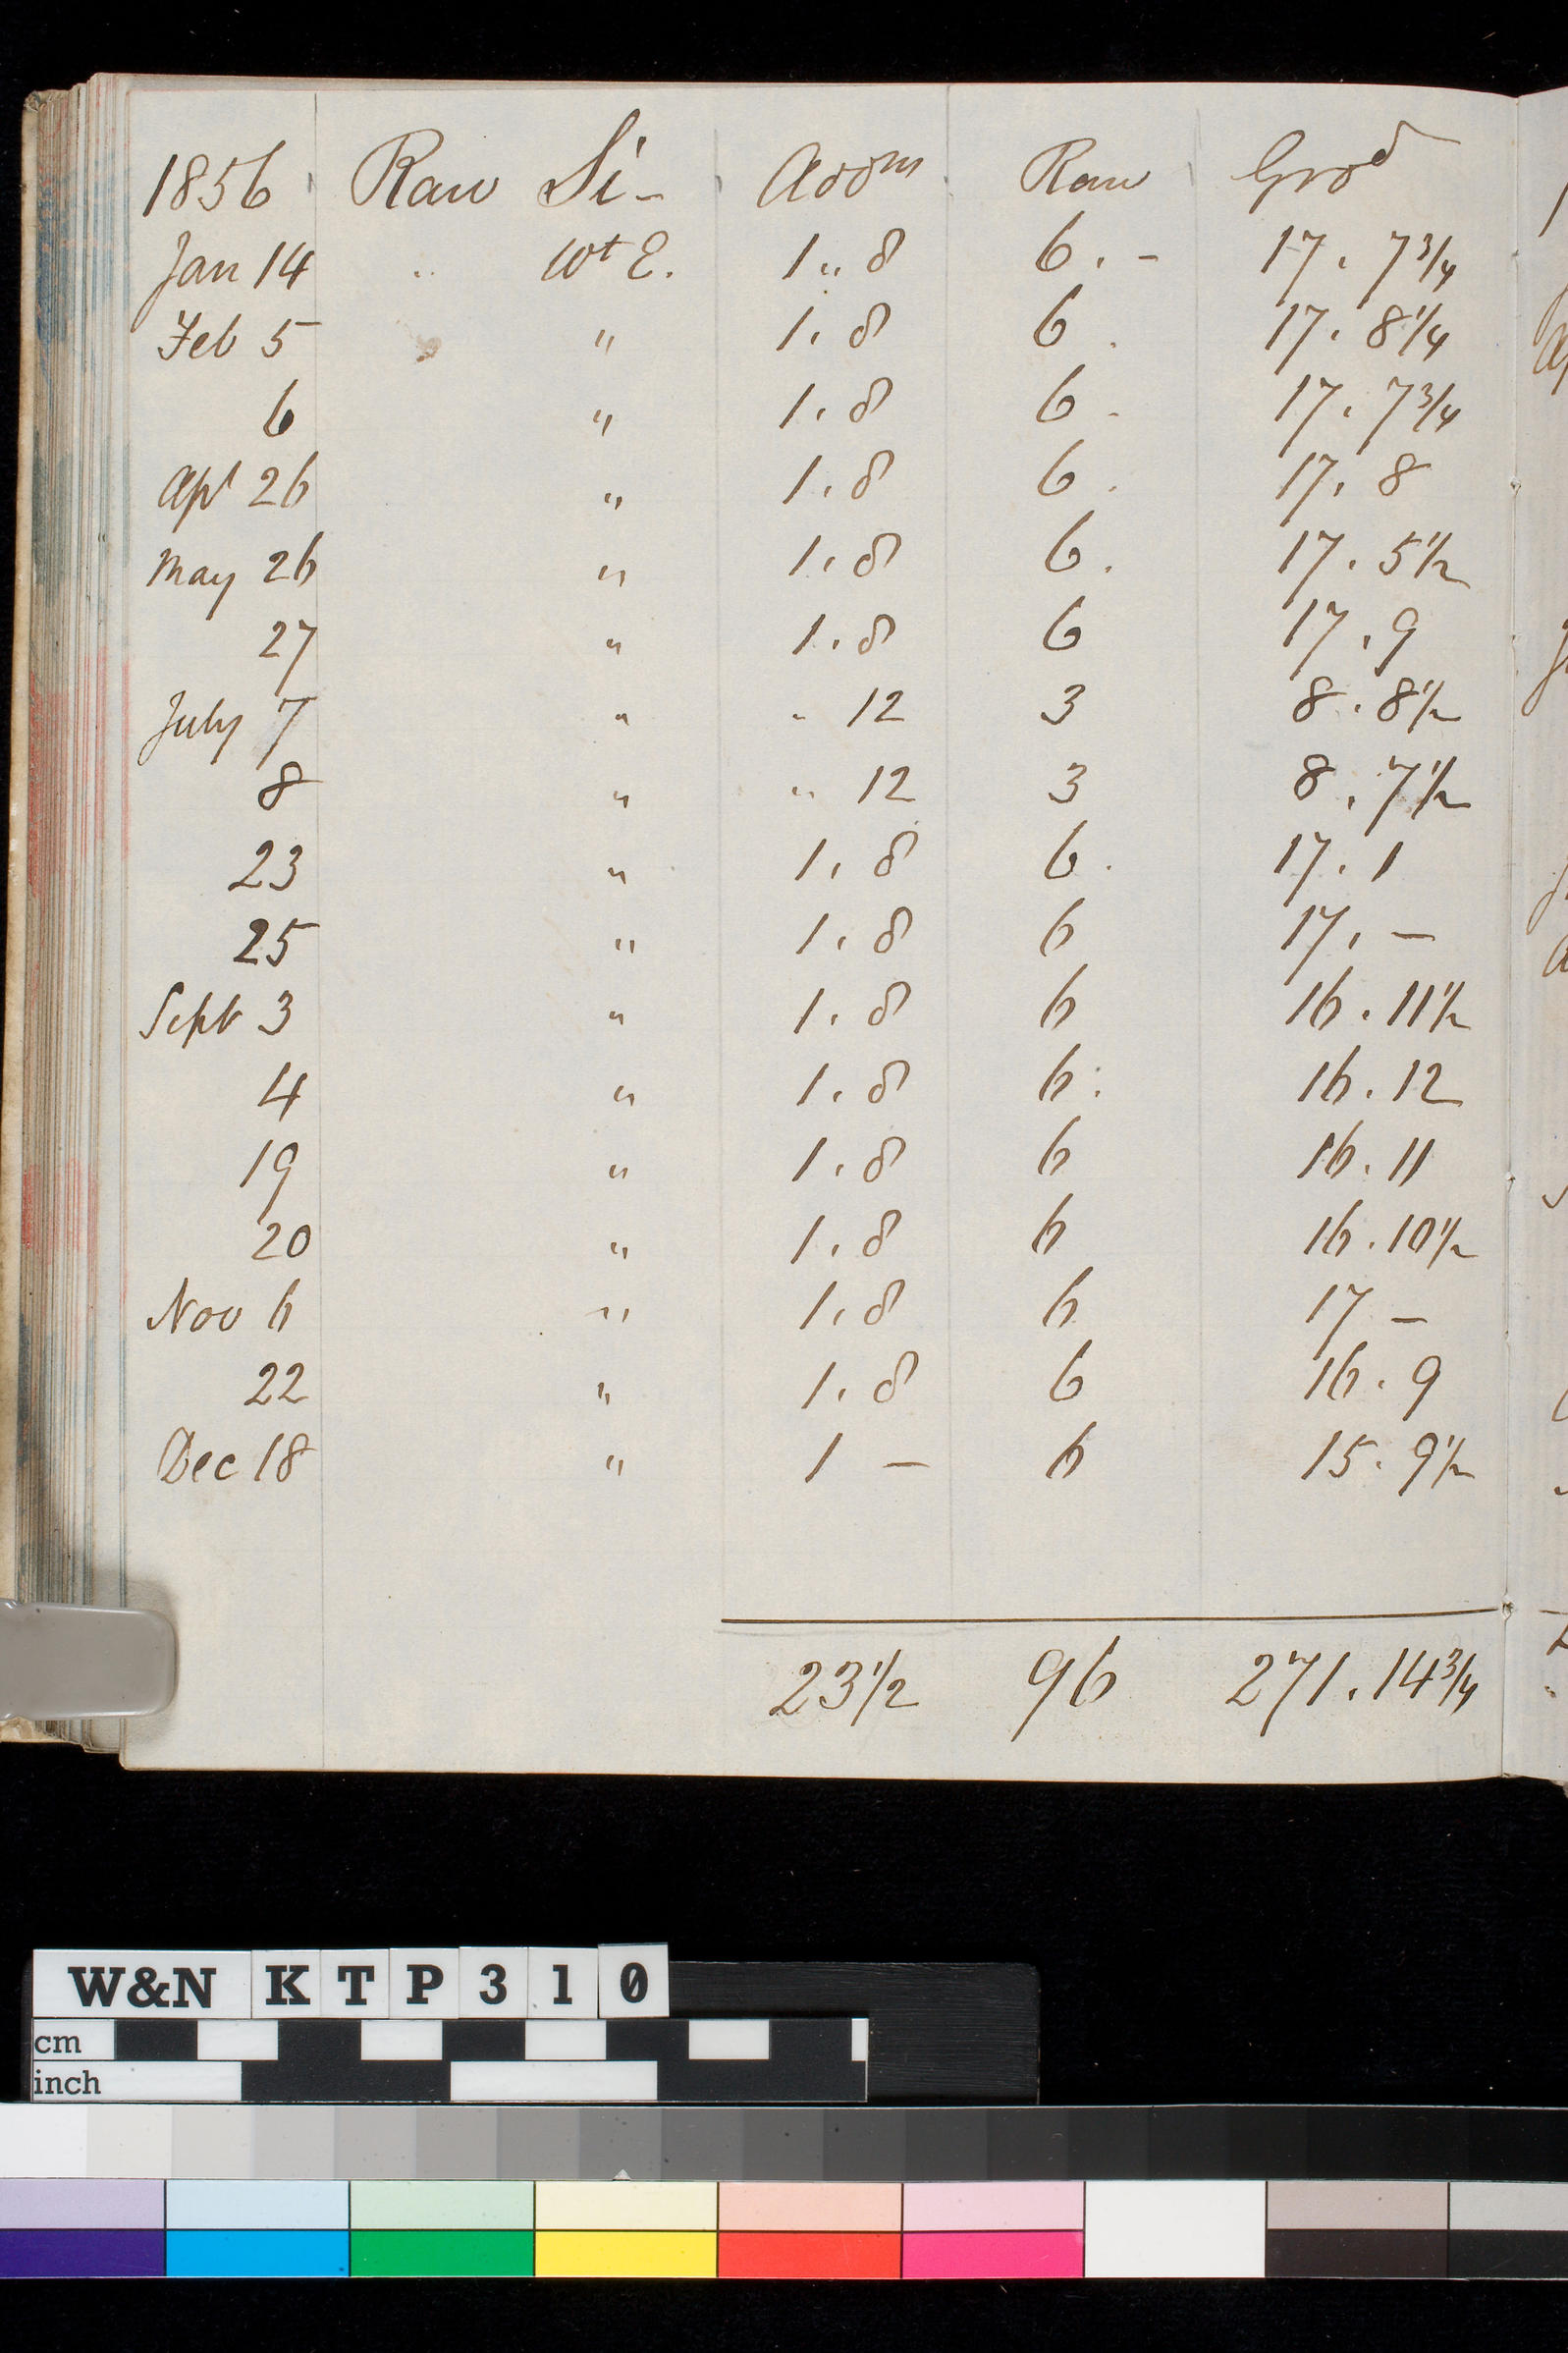 1856 Raw Si- Addn Raw Grod
Jan 14 " Wt E. 1 " 8 6 . - 17 . 7 3/4
Feb 5 " 1 . 8 6 . 17 . 8 1/4
6 " 1 . 8 6 - 17 . 7 3/4
Apl 26 " 1 . 8 6 . 17 . 8
May 26 " 1 . 8 6 . 17 . 5 1/2
27 " 1 . 8 6 17 . 9
July 7 " " 12 3 8 . 8 1/2
8 " " 12 3 8 . 7 1/2
23 " 1 . 8 6 . 17 . 1
25 " 1 . 8 6 17 . -
Sept 3 " 1 . 8 6 16 . 11 1/2
4 " 1 . 8 6 : 16 . 12
19 " 1 . 8 6 16 . 11
20 " 1 . 8 6 16 . 10 1/2
Nov 6 " 1 . 8 6 17 -
22 " 1 . 8 6 16 . 9
Dec 18 " 1 - 6 15 . 9 1/2
23 1/2 96 271 . 14 3/4
W&N KTP310
cm
inch